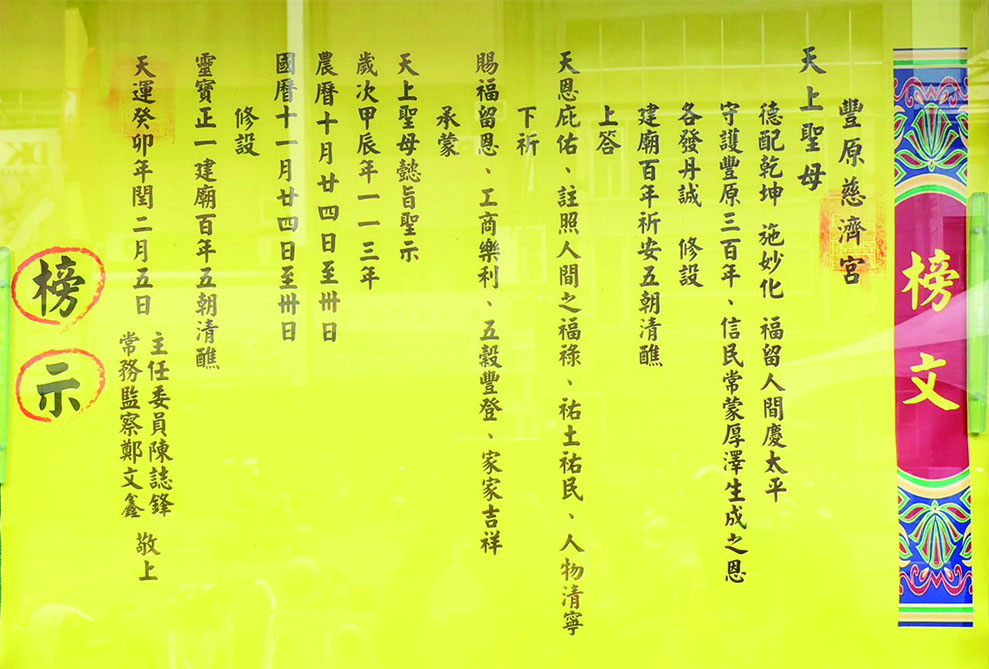 榜文
豐原慈濟宮
天上聖母
德配乾坤 施妙化 福留人間慶太平
守護豐原三百年、信民常蒙厚澤生成之恩
各發丹誠 修設
建廟百年祈安五朝清醮
上答
天恩庇佑、註照人間之福祿、祐土祐民、人物清寧
下祈
賜福留恩、工商樂利、五穀豐登、家家吉祥
承蒙
天上聖母懿旨聖示
歲次甲辰年一一三年
農曆十月廿四日至卅日
國曆十一月廿四日至卅日
修設
靈寶正一建廟百年五朝清醮
天運癸卯年閏二月五日
主任委員陳誌鋒
常務監察鄭文鑫 敬上
榜示